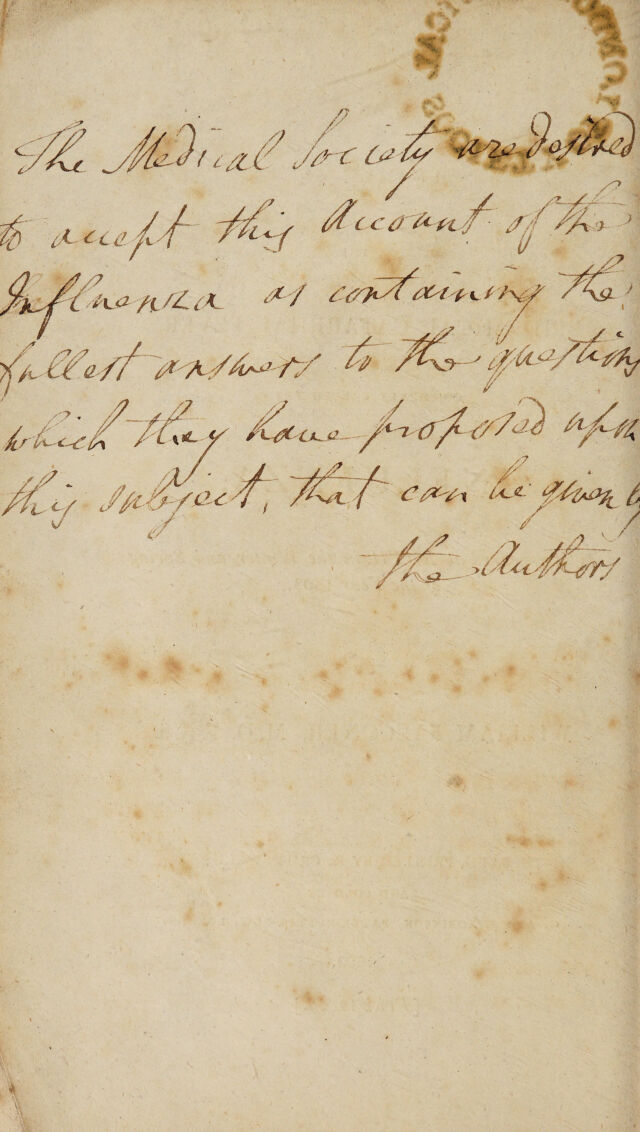 MEDICAL SOC
LONDON
The Medical Society are desired
to accept this Account of the
Influenza as containing the
fullest answers to the questions
which they have proposed upon
this subject, that can be given by
the Authors